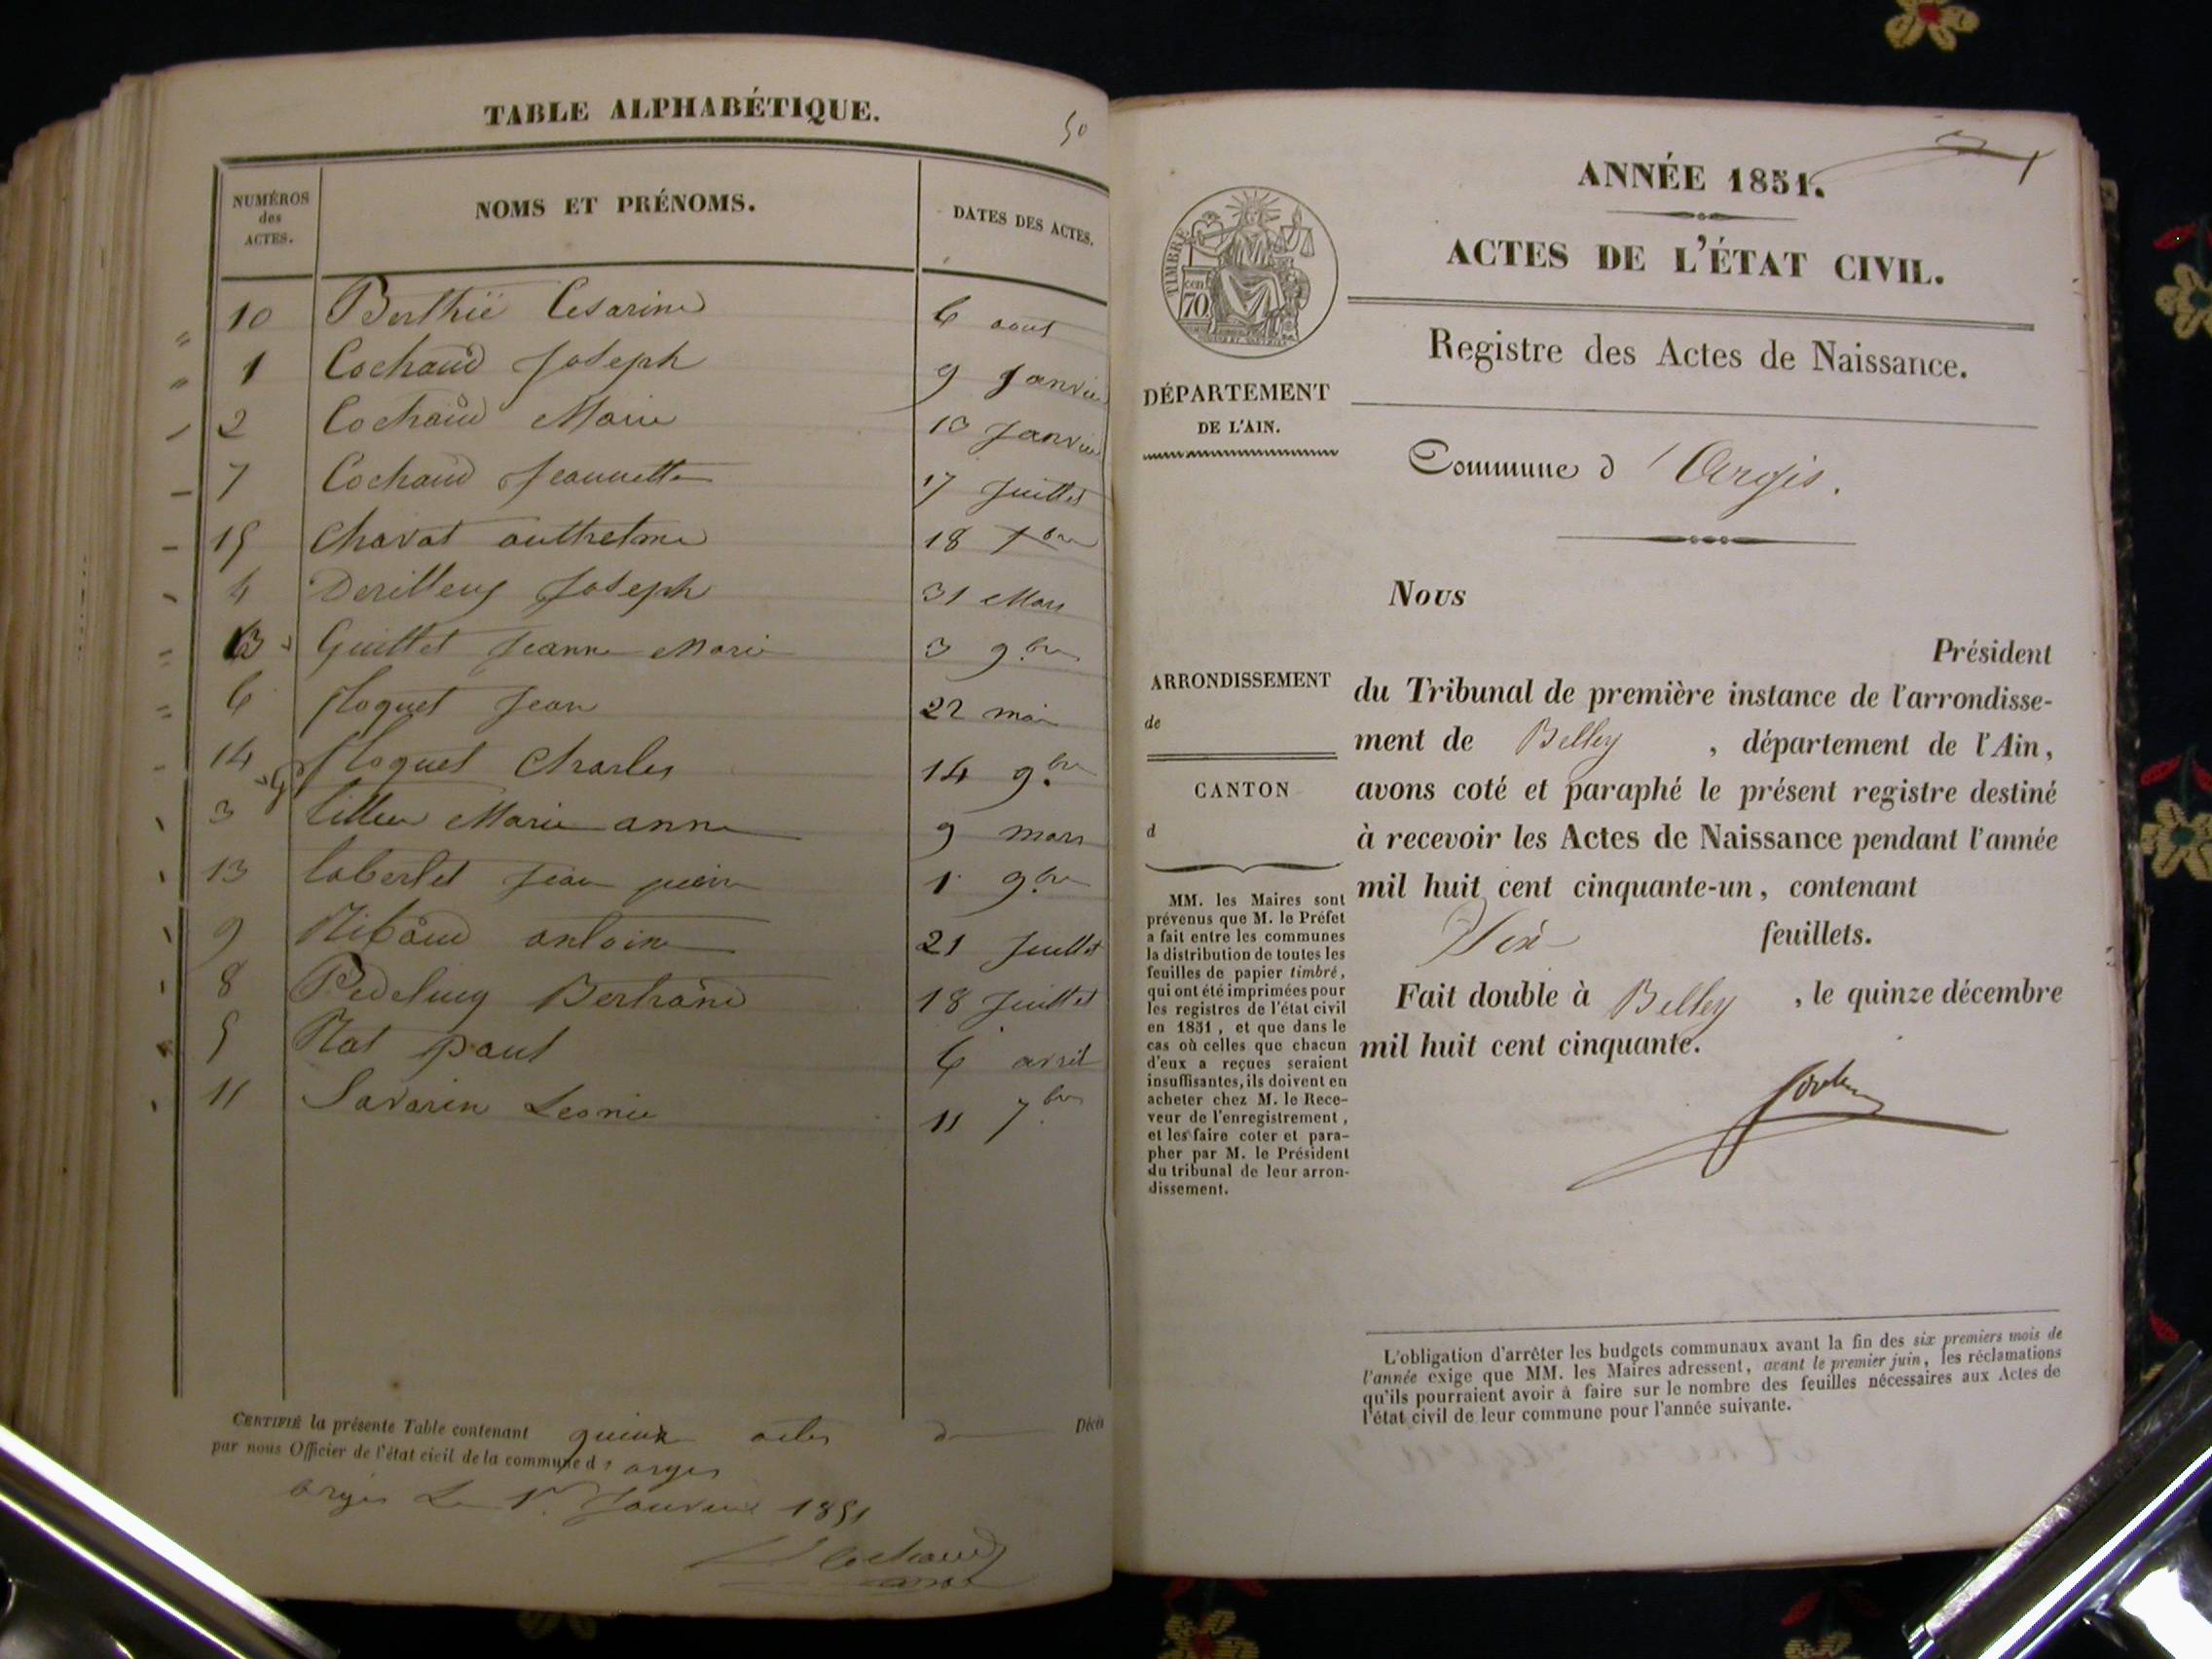 TABLE ALPHABÉTIQUE.
50
NUMÉROS des ACTES.
NOMS ET PRÉNOMS.
DATES DES ACTES.
10 Berthié Cesarine 6 aout
1 Cochaud Joseph 9 Janvier
2 Cochaud Marie 10 Janvier
7 Cochaud Jeannette 17 Juillet
15 Chavat anthelme 18 bre
4 Joseph 31 Mars
13 Guillet Jeanne Marie 3 9.bre
6 floquet Jean 22 mai
14 floquet Charles 14 9.bre
3 Marie anne 9 mars
13 laberlet Jean pierre 1 9bre
9 antoine 21 Juillet
8 Bertrand 18 Juillet
5 Rat paul 6 avril
11 Savarin Leonie 11 7bre
CERTIFIÉ la présente Table contenant quinze actes de Décès
par nous Officier de l'état civil de la commune d'argis
argis Le 1er Janvier 1851
Cochaud
ANNÉE 1851.
ACTES DE L'ÉTAT CIVIL.
TIMBRE
cen
70
Registre des Actes de Naissance.
DÉPARTEMENT
DE L'AIN.
Commune d'Argis.
Nous
Président
ARRONDISSEMENT
de
du Tribunal de première instance de l'arrondisse-
ment de Belley, département de l'Ain,
CANTON
d
avons coté et paraphé le présent registre destiné
à recevoir les Actes de Naissance pendant l'année
mil huit cent cinquante-un, contenant
feuillets.
Fait double à Belley, le quinze décembre
mil huit cent cinquante.
MM. les Maires sont
prévenus que M. le Préfet
a fait entre les communes
la distribution de toutes les
feuilles de papier timbré,
qui ont été imprimées pour
les registres de l'état civil
en 1851, et que dans le
cas où celles que chacun
d'eux a reçues seraient
insuffisantes, ils doivent en
acheter chez M. le Rece-
veur de l'enregistrement,
et les faire coter et para-
pher par M. le Président
du tribunal de leur arron-
dissement.
L'obligation d'arrêter les budgets communaux avant la fin des six premiers mois de
l'année exige que MM. les Maires adressent, avant le premier juin, les réclamations
qu'ils pourraient avoir à faire sur le nombre des feuilles nécessaires aux Actes de
l'état civil de leur commune pour l'année suivante.